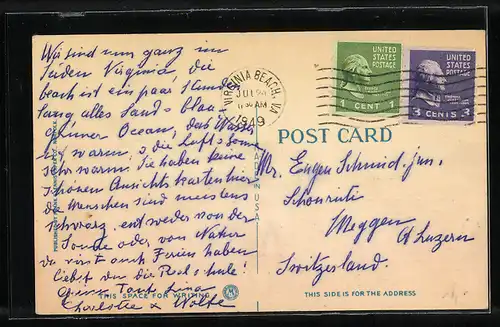 Wir sind nun ganz im
Süden Virginia, die
beach ist ein paar Stunden
lang alles Sand & blau
grüner Ocean, das Wasser
ist warm, & die Luft & Sonne
sehr warm. Sie haben keine
schönen Ansichtskarten hier
die Menschen sind meistens
schwarz, entweder von der
Sonne oder von Natur
du wirst auch Ferien haben
liebst du die Rechschule!
Deine Tant Lina
Charlotte & Wolfe
THIS SPACE FOR WRITING
MADE IN U.S.A.
VIRGINIA BEACH, VA.
JUL
AM
1949
UNITED STATES POSTAGE
1 CENT 1
UNITED STATES POSTAGE
3 CENTS 3
POST CARD
Mr. Eugen Schmid-jun.
Meggen
Luzern
Switzerland.
THIS SIDE IS FOR THE ADDRESS